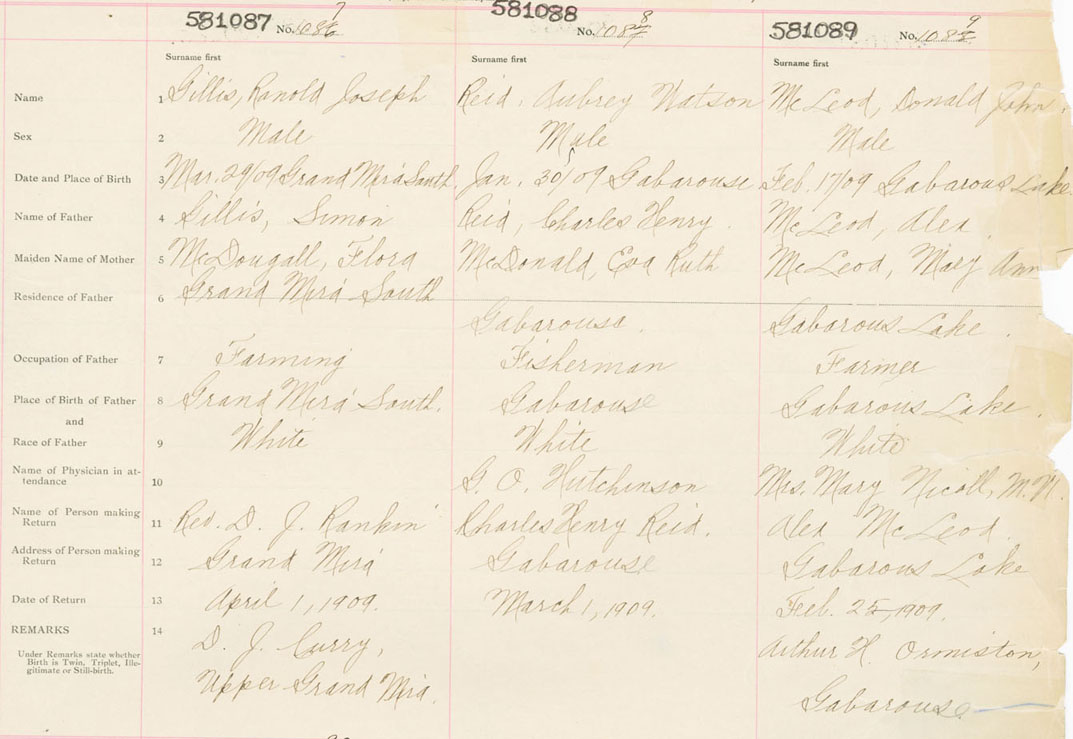 581087 No. 1087
581088 No. 1088
581089 No. 1089
Surname first Surname first Surname first
Name 1 Gillis, Ranold Joseph Reid, Aubrey Watson McLeod, Donald John.
Sex 2 Male Male Male
Date and Place of Birth 3 Mar. 29/09 Grand Mira South. Jan. 30/09 Gabarouse Feb. 17/09 Gabarous Lake
Name of Father 4 Gillis, Simon Reid, Charles Henry. McLeod, Alex.
Maiden Name of Mother 5 McDougall, Flora McDonald, Eva Ruth McLeod, Mary Ann
Residence of Father 6 Grand Mira South
Gabarouse. Gabarous Lake.
Occupation of Father 7 Farming Fisherman Farmer
Place of Birth of Father 8 Grand Mira South. Gabarouse Gabarous Lake.
and
Race of Father 9 White White White
Name of Physician in at-
tendance 10 G. O. Hutchinson Mrs. Mary Nicoll,
Name of Person making
Return 11 Rev. D. J. Rankin Charles Henry Reid. Alex McLeod.
Address of Person making
Return 12 Grand Mira Gabarouse Gabarous Lake
Date of Return 13 April 1, 1909. March 1, 1909. Feb. 25, 1909.
REMARKS 14 D. J. Curry, Arthur H. Ormiston,
Under Remarks state whether
Birth is Twin, Triplet, Ille-
gitimate or Still-birth.
Upper Grand Mira. Gabarouse